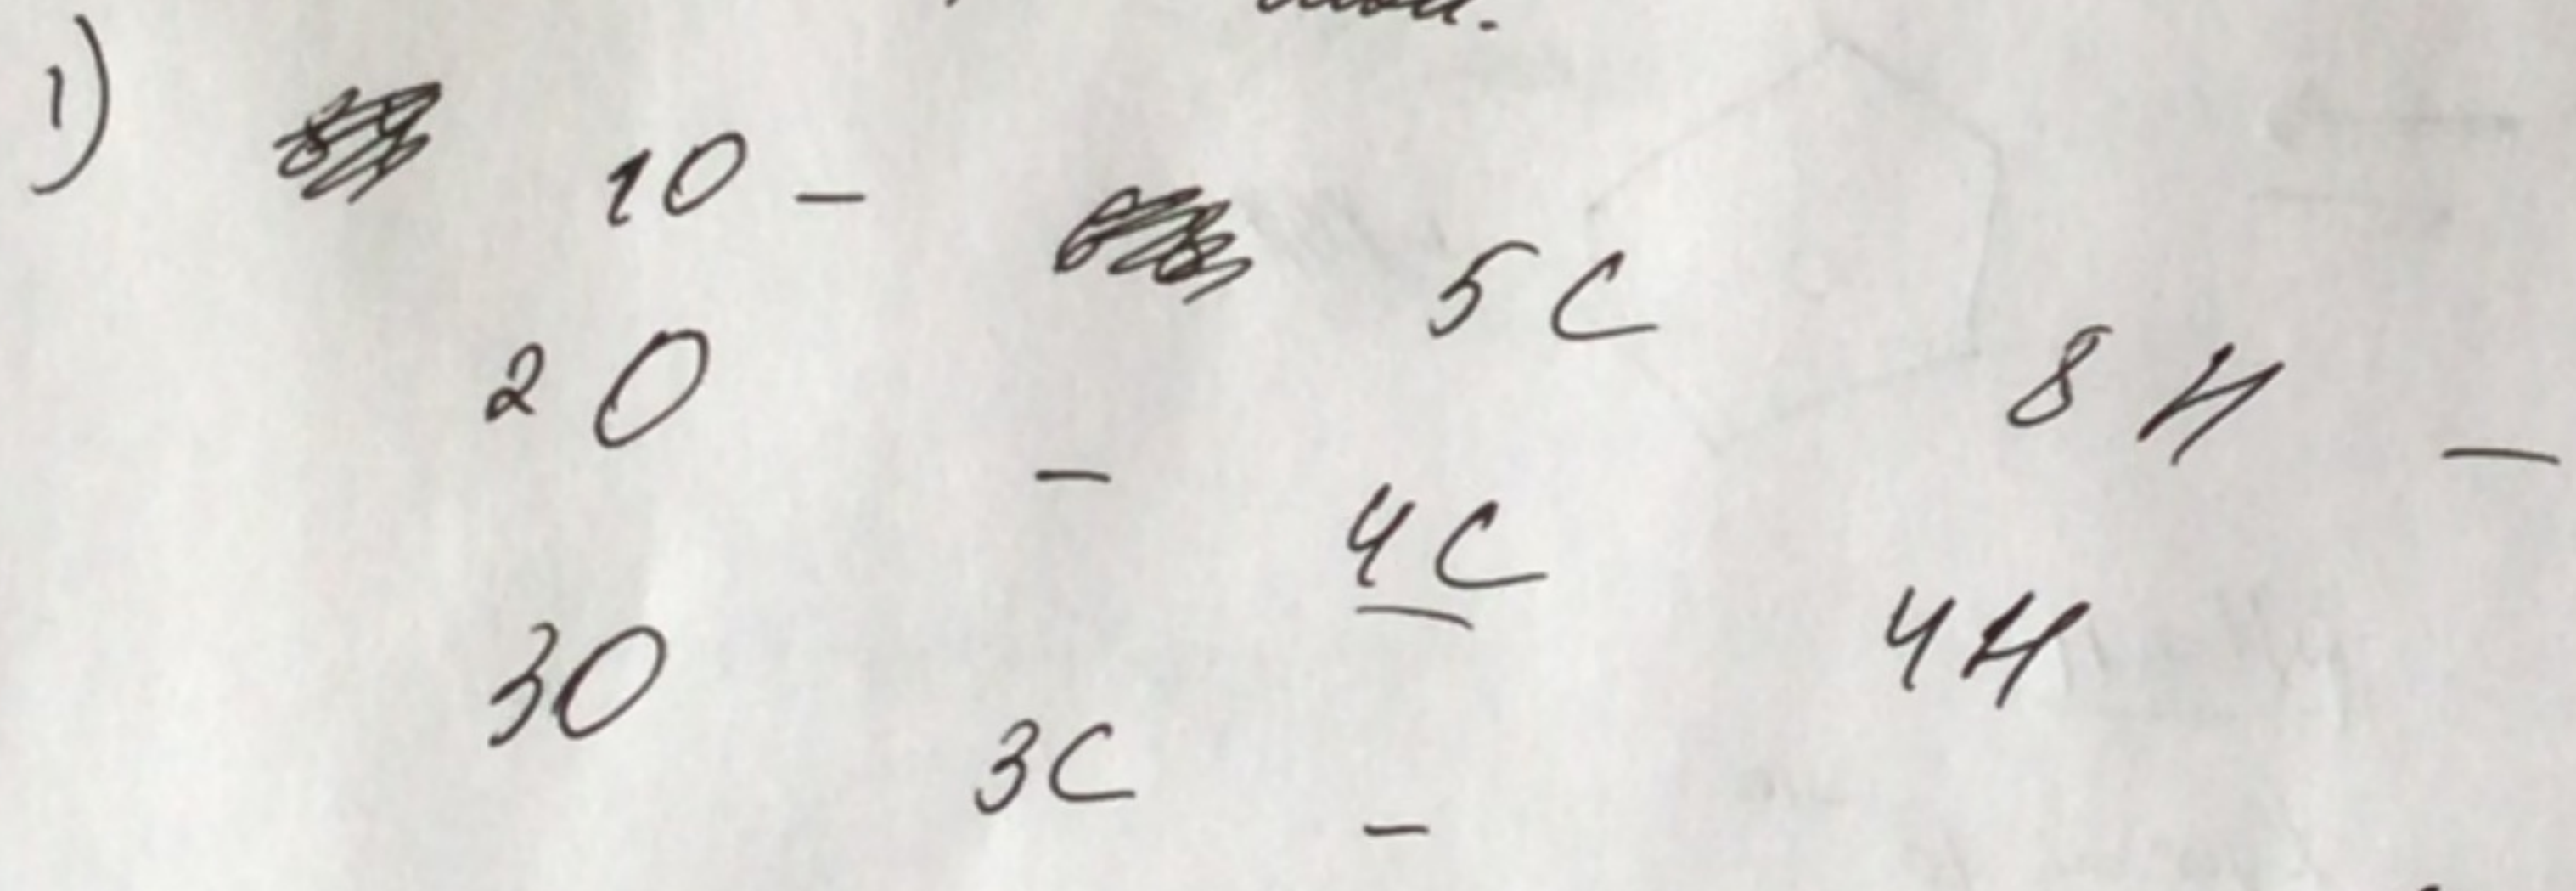 1) 1O - 5C 8H -
2O - 4C 4H
3O 3C -